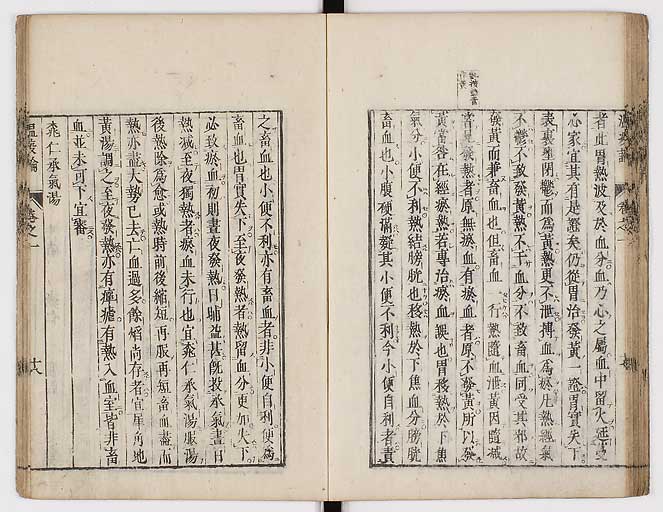 者此胃熱波及於血分血乃心之屬血中留火延蔓
心家宜其有是證矣仍從胃治發黃一證胃實失下
表裏壅閉鬱而為黃熱更不泄搏血為瘀凡熱經氣
不鬱不致發黃熱不干血分不致畜血同受其邪故
發黃而兼畜血也但畜血一行熱隨血泄黃因隨減
嘗見發熱者原無瘀血有瘀血者原不發黃所以發
黃當咎在經瘀熱若專治瘀血誤也胃移熱於下焦
氣分小便不利熱結膀胱也移熱於下焦血分膀胱
畜血也小腹硬滿疑其小便不利今小便自利者責
之畜血也小便不利亦有畜血者非小便自利便為
畜血也胃實失下至夜發熱者熱留血分更加失下
必致瘀血初則晝夜發熱日晡益甚旣投承氣晝日
熱減至夜獨熱者瘀血未行也宜桃仁承氣湯服湯
後熱除為愈或熱時前後縮短再服再短畜血盡而
熱亦盡大勢已去亡血過多餘焰尚存者宜犀角地
黃湯調之至夜發熱亦有癉瘧有熱入血室皆非畜
血並未可下宜審
桃仁承氣湯
溫疫論
卷之一
十八